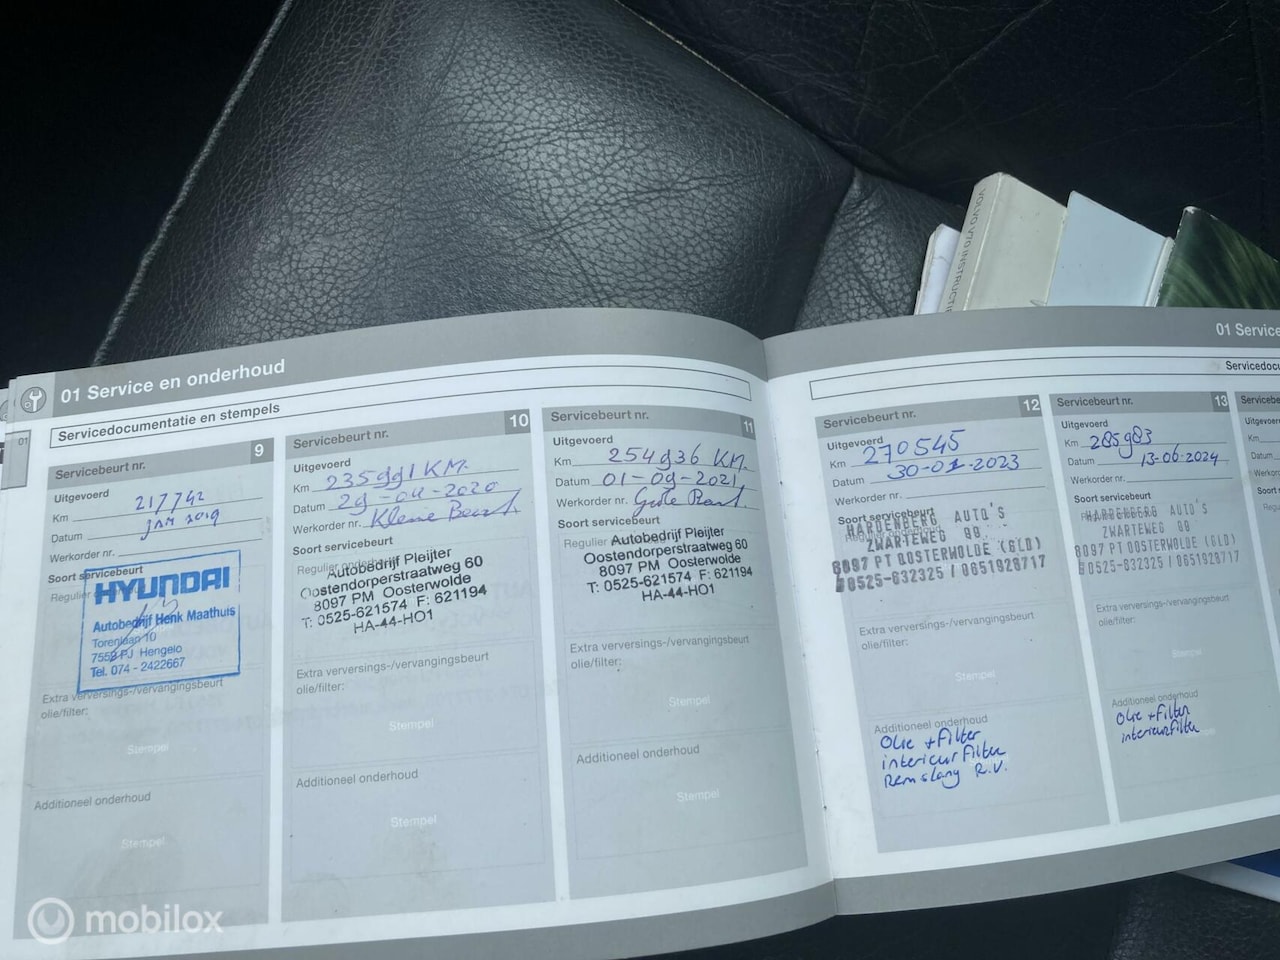 VOLVO V70 INSTRUCTIE
01 Service en onderhoud
01
Servicedocumentatie en stempels
Servicebeurt nr. 9
Uitgevoerd
Km 217742
Datum jan 2019
Werkorder nr.
Soort servicebeurt
Regulier
HYUNDAI
Autobedrijf Henk Maathuis
Torenlaan 10
7559 PJ Hengelo
Tel. 074 - 2422667
Extra verversings-/vervangingsbeurt
olie/filter:
Stempel
Additioneel onderhoud
Stempel
Servicebeurt nr. 10
Uitgevoerd
Km 235991 KM.
Datum 29-04-2020
Werkorder nr. Kleine Beurt.
Soort servicebeurt
Regulier onderhoud
Autobedrijf Pleijter
Oostendorperstraatweg 60
8097 PM Oosterwolde
T: 0525-621574 F: 621194
HA-44-HO1
Extra verversings-/vervangingsbeurt
olie/filter:
Stempel
Additioneel onderhoud
Stempel
Servicebeurt nr. 11
Uitgevoerd
Km 254936 KM.
Datum 01-09-2021
Werkorder nr. Grote Beurt.
Soort servicebeurt
Regulier
Autobedrijf Pleijter
Oostendorperstraatweg 60
8097 PM Oosterwolde
T: 0525-621574 F: 621194
HA-44-HO1
Extra verversings-/vervangingsbeurt
olie/filter:
Stempel
Additioneel onderhoud
Stempel
01 Service
Servicedocu
Servicebeurt nr. 12
Uitgevoerd
Km 270545
Datum 30-01-2023
Werkorder nr.
Soort servicebeurt
HARDENBERG AUTO'S
ZWARTEWEG 90
8097 PT OOSTERWOLDE (GLD)
0525-832325 / 0651928717
Extra verversings-/vervangingsbeurt
olie/filter:
Stempel
Additioneel onderhoud
Olie + Filter
interieurfilter
Remslang R.V.
Servicebeurt nr. 13
Uitgevoerd
Km 285983
Datum 13-06-2024
Werkorder nr.
Soort servicebeurt
HARDENBERG AUTO'S
ZWARTEWEG 90
8097 PT OOSTERWOLDE (GLD)
0525-832325 / 0651928717
Extra verversings-/vervangingsbeurt
olie/filter:
Stempel
Additioneel onderhoud
Olie + Filter
interieurfilter
Servicebeurt
Uitgevoerd
Km
Datum
Werkorder
Soort
mobilox